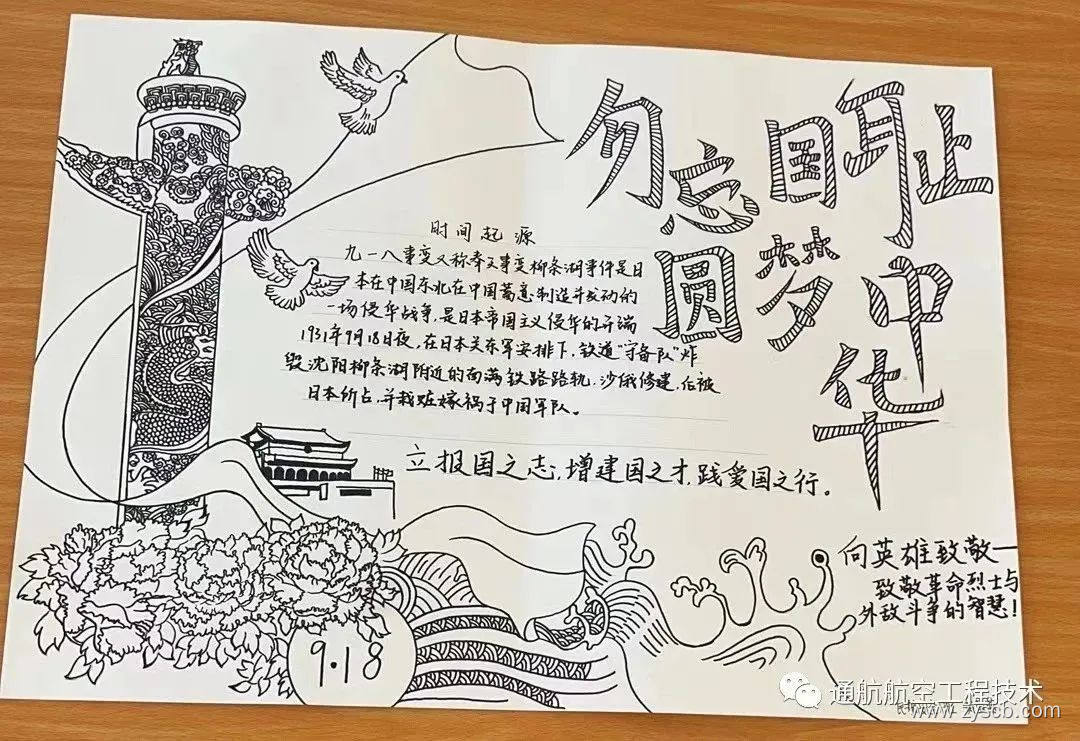 勿忘国耻
圆梦中华
时间起源
九一八事变又称奉天事变柳条湖事件是日
本在中国东北在中国蓄意制造并发动的
一场侵华战争,是日本帝国主义侵华的开端
1931年9月18日夜,在日本关东军安排下,铁道"守备队"炸
毁沈阳柳条湖附近的南满铁路路轨,沙俄修建,后被
日本所占,并栽赃嫁祸于中国军队。
立报国之志,增建国之才,践爱国之行。
向英雄致敬—
致敬革命烈士与
外敌斗争的智慧!
9·18
通航航空工程技术
www.zyscb.com